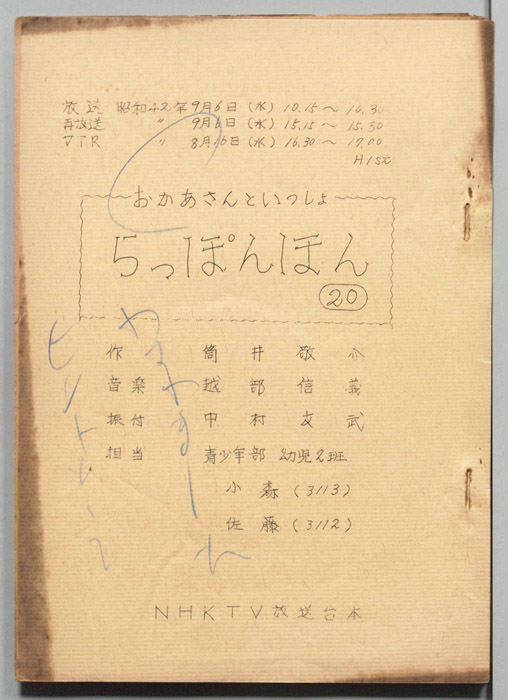 放送 昭和42年9月6日(水) 10.15〜10.30
再放送 〃 9月6日(水) 15.15〜15.30
VTR 〃 8月16日(水) 16.30〜17.00
H1st
おかあさんといっしょ
らっぽんほん
20
作 筒井敬介
音楽 越部信義
振付 中村友武
担当 青少年部 幼児2班
小森(3113)
佐藤(3112)
NHKTV放送台本